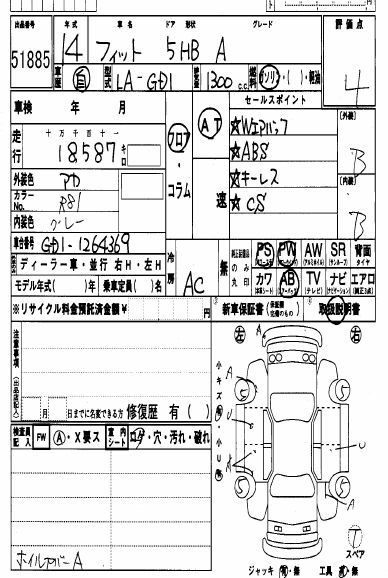 出品番号 年式 車名 ドア 形状 グレード 評価点
51885 14 フィット 5HB A 4
車歴 自 型式 LA-GD1 排気量 1300 c.c. 燃料 ガソリン・( )・軽油
車検 年 月
セールスポイント
走行 十万千百十一
18587 キロ
フロア・コラム
AT 速
★Wエアバッグ
★ABS
★キーレス
★CS
(外装) B
(内装) B
外装色 アカ
カラーNo. R81
内装色 グレー
車台番号 GD1-1264369
冷房 AC
純正装備品のみ丸印 無
PS PW AW SR 背面タイヤ
カワ AB TV ナビ エアロ
ディーラー車・並行 右H・左H
モデル年式( )年 乗車定員( )名
※リサイクル料金預託済金額¥ 円
新車保証書 取扱説明書
注意事項(出品店記入)
月 日までに名変できる方 修復歴 有( )
検査員記入 FW A・X要ス 室内シート コゲ・穴・汚れ・破れ
ホイルカバーA
右 左
小キズ 小U
A A A A A
U U
5 5 5 5
スペア
ジャッキ 有・無 工具 有・無